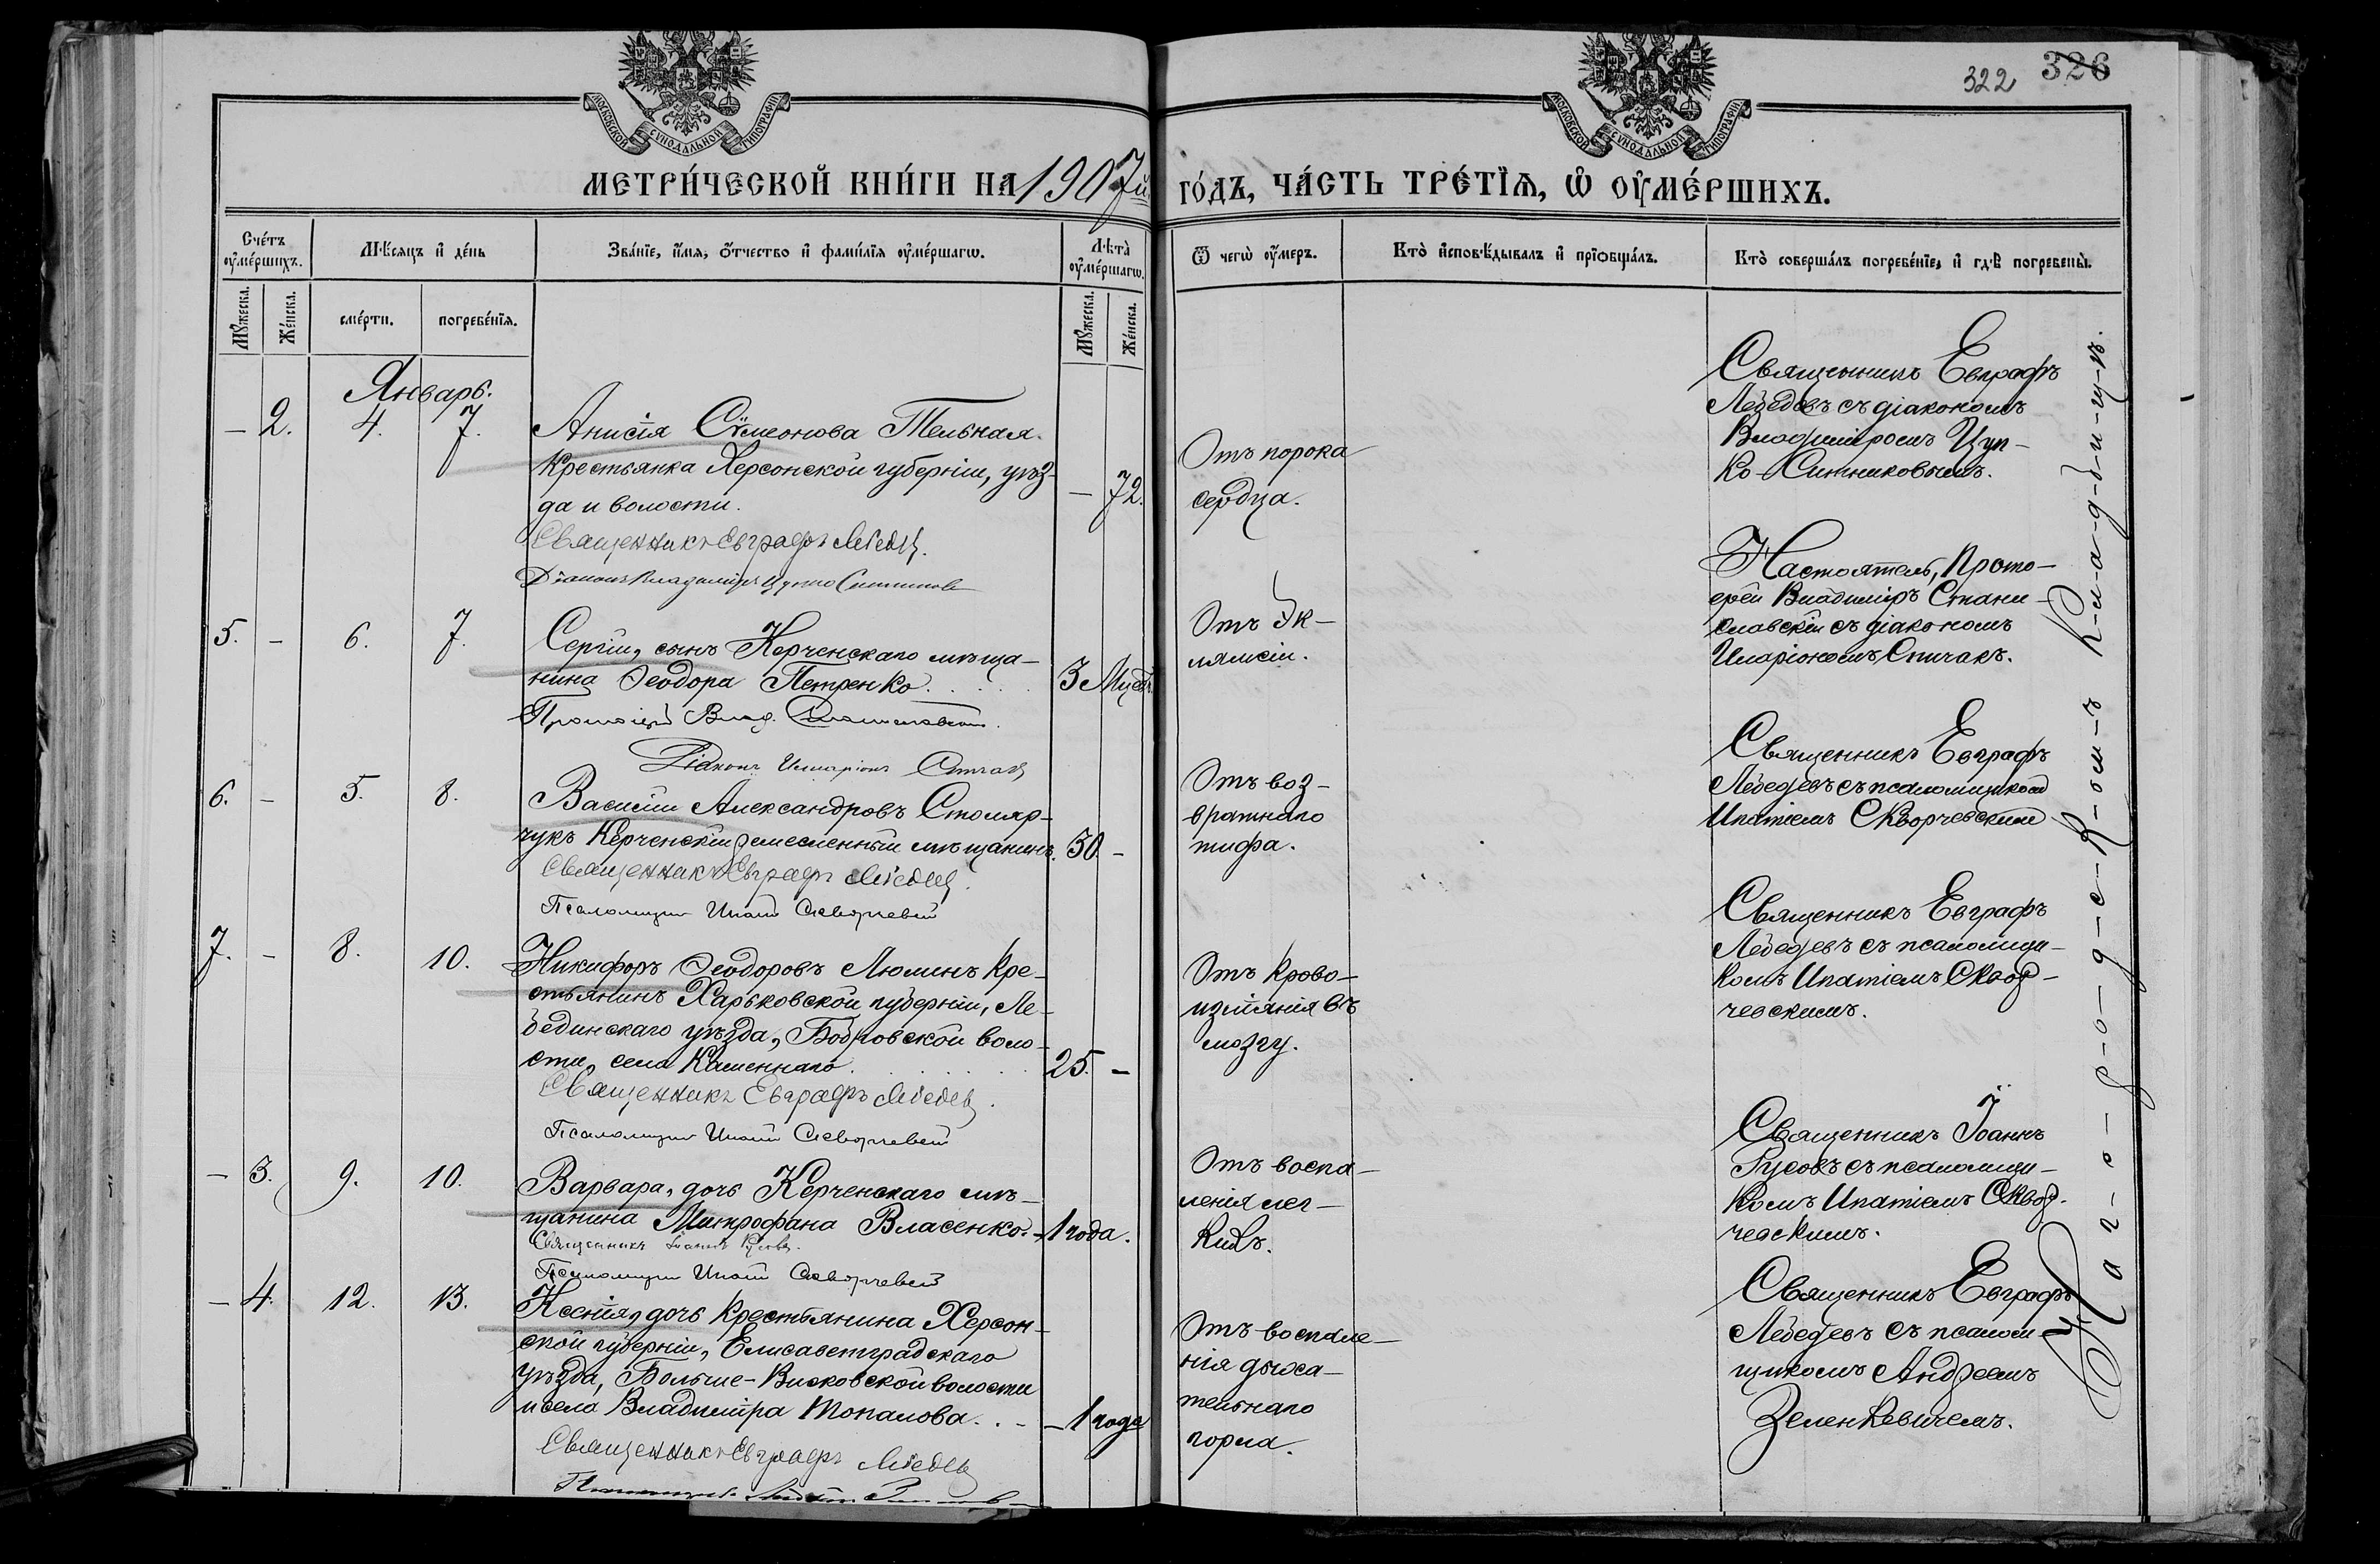 322 326
МОСКОВСКОЙ СѴНОДАЛЬНОЙ ТИПОГРАФІИ
МОСКОВСКОЙ СѴНОДАЛЬНОЙ ТИПОГРАФІИ
МЕТРИ́ЧЕСКОЙ КНИ́ГИ НА 1907й
ГО́ДЪ, ЧА́СТЬ ТРЕ́ТІѦ, Ѡ҆ ОУ҆МЕ́РШИХЪ.
Сче́тъ оу҆ме́ршихъ.
Мѣ́сяцъ и҆ де́нь
Зва́нїе, и҆́мя, ѻ҆́тчество и҆ фами́лїя оу҆ме́ршагѡ.
Лѣта̀ оу҆ме́ршагѡ.
Мꙋ́жеска.
Же́нска.
сме́рти.
погребе́нїя.
Мꙋ́жеска.
Же́нска.
Ѿ чегѡ̀ оу҆́меръ.
Кто̀ и҆сповѣ́дывалъ и҆ прїѻбща́лъ.
Кто̀ соверша́лъ погребе́нїе, и҆ гдѣ̀ погребены̀.
Январь.
— 2. 4. 7.
Анисія Сѵмеонова Тельная.
Крестьянка Херсонской губерніи, уѣз-
да и волости.
— 72.
Священникъ Евграфъ Лебедевъ.
Діаконъ Владиміръ Цупко Ситников
Отъ порока
сердца.
Священникъ Евграфъ
Лебедевъ съ діакономъ
Владиміромъ Цуп-
ко-Ситниковымъ.
5. — 6. 7.
Сергій, сынъ Керченскаго мѣща-
нина Ѳеодора Петренко.
3 Мцев.
Протоіерей Влад. Станиславскій.
Діаконъ Иларіонъ Спичакъ
Отъ Эк-
лямсіи.
Настоятель, Прото-
ерей Владиміръ Стани-
славскій съ діакономъ
Иларіономъ Спичакъ.
6. — 5. 8.
Василій Александровъ Столяр-
чукъ Керченскій ремесленный мѣщанинъ.
30. —
Священникъ Евграфъ Лебедевъ.
Псаломщикъ Ипатій Скворчевскій
Отъ воз-
вратнаго
тифа.
Священникъ Евграфъ
Лебедевъ съ псаломщикомъ
Ипатіемъ Скворчевскимъ
7. — 8. 10.
Никифоръ Ѳеодоровъ Люминъ Кре-
стьянинъ Харьковской губерніи, Ле-
бединскаго уѣзда, Бобровской воло-
сти, села Каменнаго.
25. —
Священникъ Евграфъ Лебедевъ.
Псаломщикъ Ипатій Скворчевскій
Отъ крово-
изліянія въ
мозгу.
Священникъ Евграфъ
Лебедевъ съ псаломщи-
комъ Ипатіемъ Сквор-
чевскимъ.
— 3. 9. 10.
Варвара, дочь Керченскаго мѣ-
щанина Митрофана Власенко.
— 1 года.
Священникъ Іоаннъ Русовъ.
Псаломщикъ Ипатій Скворчевскій
Отъ воспа-
ленія лег-
кихъ.
Священникъ Іоаннъ
Русовъ съ псаломщи-
комъ Ипатіемъ Сквор-
чевскимъ.
— 4. 12. 13.
Ксенія, дочь Крестьянина Херсон-
ской губерніи, Елисаветградскаго
уѣзда, Больше-Висковской волости
и села Владиміра Топалова.
— 1 года
Священникъ Евграфъ Лебедевъ
Отъ воспале-
нія дыха-
тельнаго
горла.
Священникъ Евграфъ
Лебедевъ съ псалом-
щикомъ Андреемъ
Зеленкевичемъ.
На г-о-р-о-д-с-к-о-м-ъ к-л-а-д-б-и-щ-ѣ.